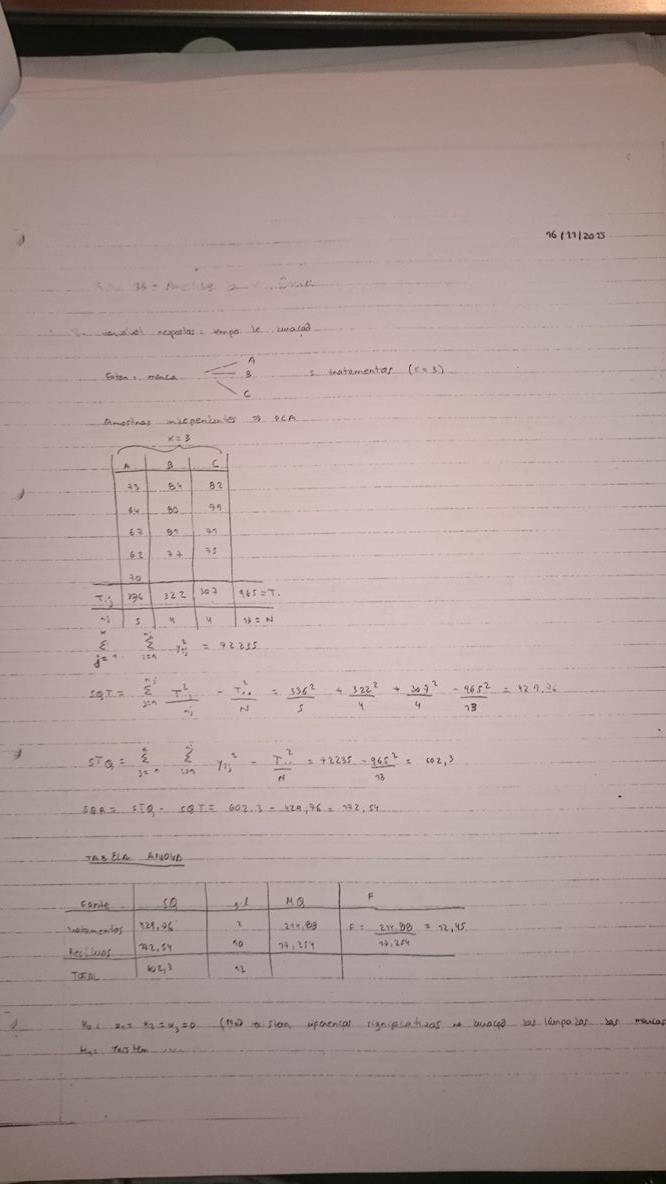 16/11/2023
variável respostas: tempo de duração
A
Fator: marca B 3 tratamentos (k=3)
C
Amostras independentes => DCA
k=3
A B C
73 84 82
64 80 79
67 81 71
62 77 75
70
T.j 336 322 307 965=T..
nj 5 4 4 13=N
∑ j=1 k ∑ i=1 nj yij² = 72235
SQT = ∑ T.j²/nj - T..²/N = 336²/5 + 322²/4 + 307²/4 - 965²/13 = 429,76
STQ = ∑ ∑ yij² - T..²/N = 72235 - 965²/13 = 602,3
SQR = STQ - SQT = 602,3 - 429,76 = 172,54
TABELA ANOVA
Fonte SQ g.l MQ F
tratamentos 429,76 2 214,88 F = 214,88/17,254 = 12,45
Resíduos 172,54 10 17,254
TOTAL 602,3 12
H0: α1 = α2 = α3 = 0 (Não existem diferenças significativas na duração das lâmpadas das marcas
H1: Existem ...